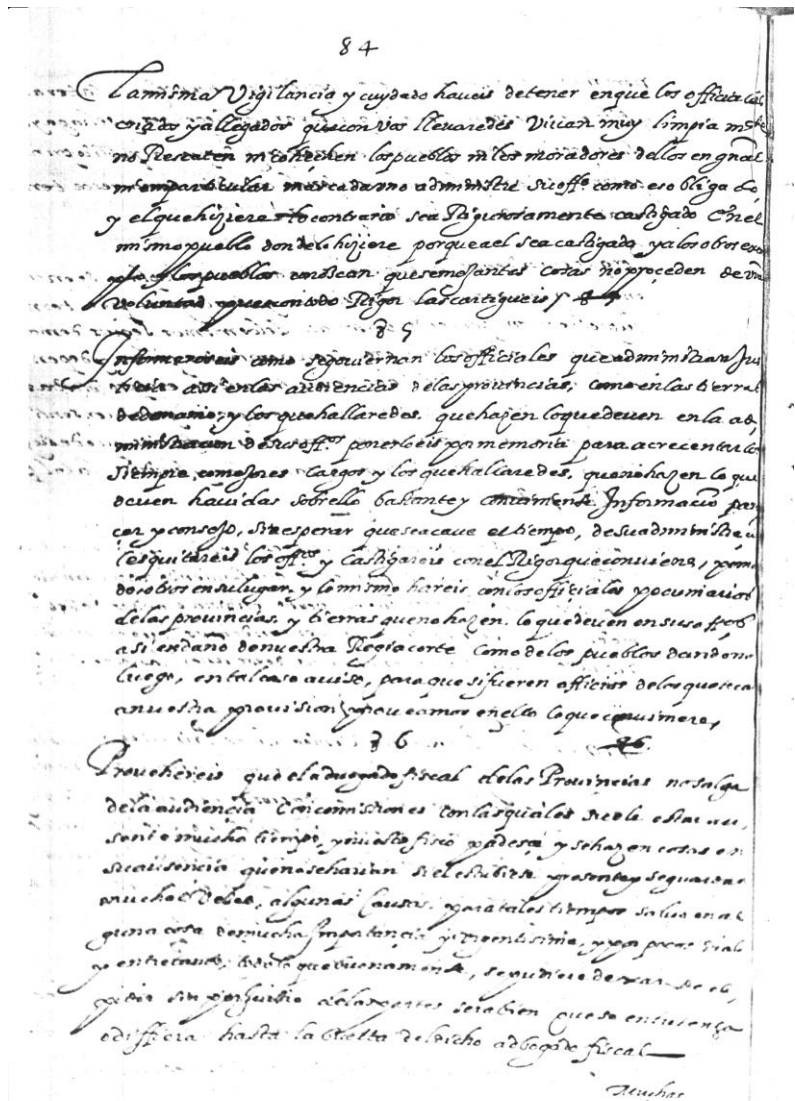 84
La misma Vigilancia y cuydado haueis de tener en que los officiales
criados y allegados que con Vos lleuaredes Viuan muy limpia mte
no Rescaten ni cohechen los pueblos ni los moradores dellos en gnal
ni en particular mas cada uno administre su offo como es obligado
y el que hiziere lo contrario sea Rigurosamente castigado en el
mismo pueblo donde lo hiziere porque a el sea castigado y a los otros exo
y los pueblos conozcan que semejantes cosas no proceden de vra
voluntad y que con todo Rigor las castigueis
85
Informaros eis como se gouiernan los officiales que administran Jus
ticia assi en las audiencias de las prouincias, como en las tierras
de demanio, y los que hallaredes que hazen lo que deuen en la ad
ministracion de sus offos ponerlo eis por memoria para acrecentarlos
siempre, a mejores cargos y los que hallaredes, que no hazen lo que
deuen hauida sobrello bastante y Informacion pare
cer y consejo, sin esperar que se acaue el tiempo, de su administracion
les quitareis los offos y castigareis con el Rigor que conuiene,
otros en su lugar, y lo mismo hareis con los officiales pecuniarios
de las prouincias, y tierras que no hazen lo que deuen en sus offos
asi en daño de nuestra Regia corte como de los pueblos dandonos
luego, en tal caso auiso, para que si fueren officios de los que toca
a nuestra prouision proueamos en ello lo que conuiniere,
86 86
Prouehereis que el aduogado fiscal de las Prouincias no salga
de la audiencia Con comissiones con las quales suele estar au
sente mucho tiempo, y nuestro fisco padesce y se hazen cosas en
su ausencia que no se harian si el estubiese presente y se guardan
muchas Vezes, algunas Causas, para tales tiempos saluo en al
guna cosa de mucha Importancia y Vrgentissima, y por pocos dias
y entretanto, todo lo que buenamente, se pudiere dexar de
sin perjuicio de las partes sera bien que se entretenga
o diffiera hasta la buelta del dicho adbogado fiscal
Muchas